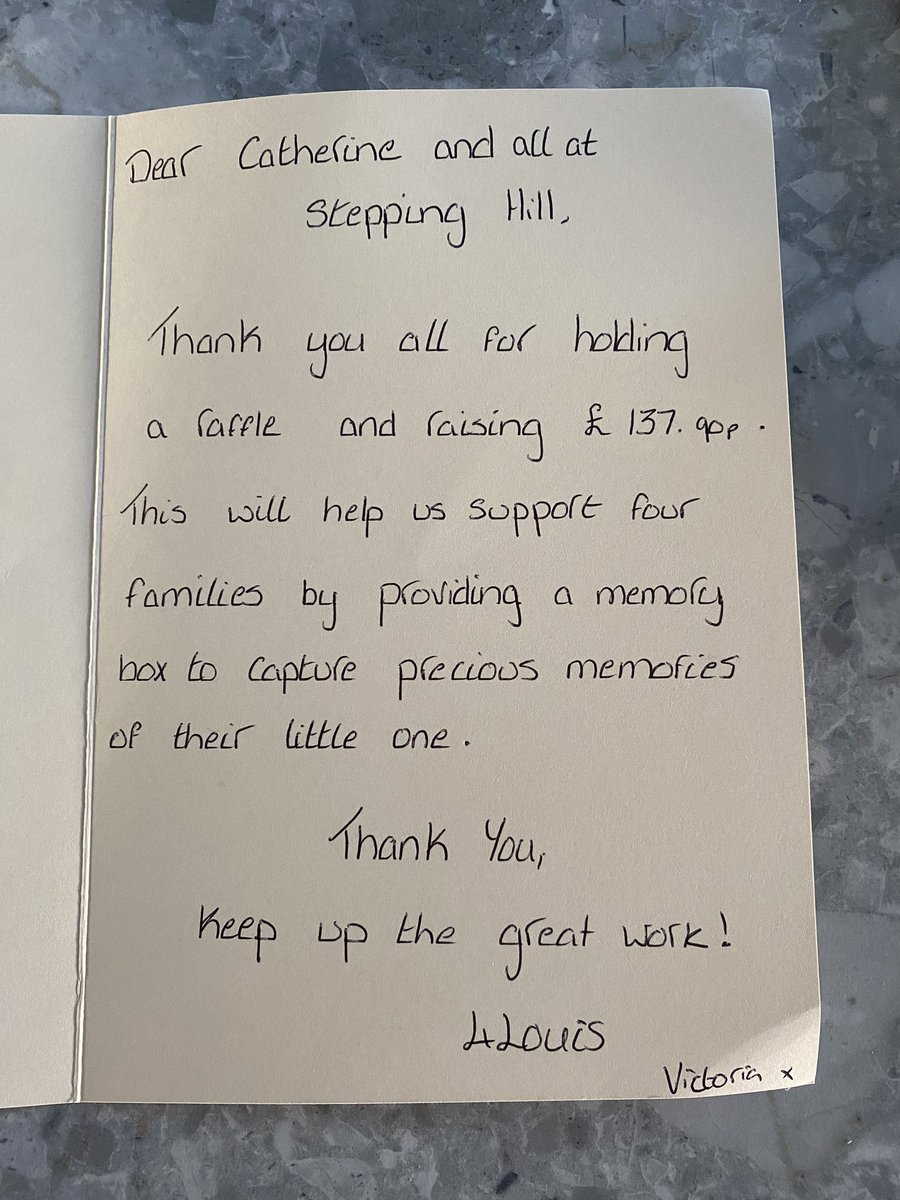 Dear Catherine and all at
Stepping Hill,
Thank you all for holding
a raffle and raising £137.90p.
This will help us support four
families by providing a memory
box to capture precious memories
of their little one.
Thank You,
Keep up the great work!
4Louis
Victoria x